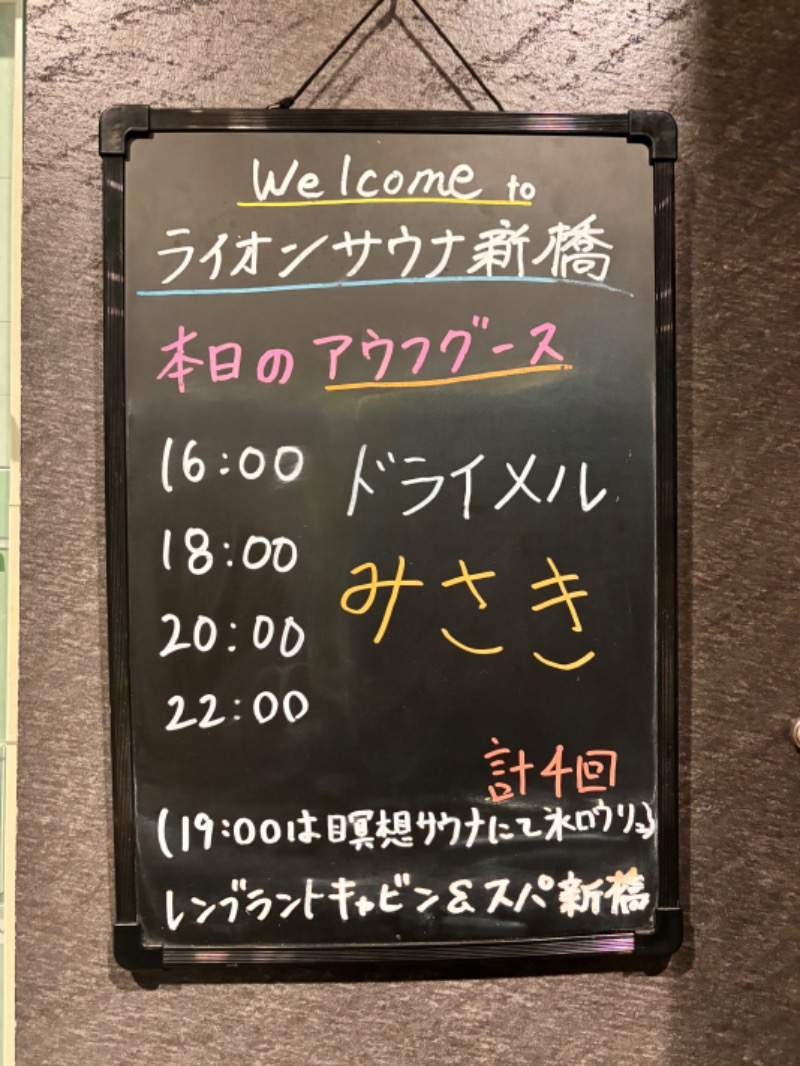 Welcome to
ライオンサウナ新橋
本日のアウフグース
16:00 ドライメル
18:00 みさき
20:00
22:00
計4回
(19:00は瞑想サウナにて氷ロウリュ)
レンブラントキャビン&スパ新橋